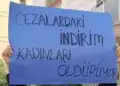 CEZALARDAKİ
İNDİRİM
KADINLARI
ÖLDÜRÜYOR